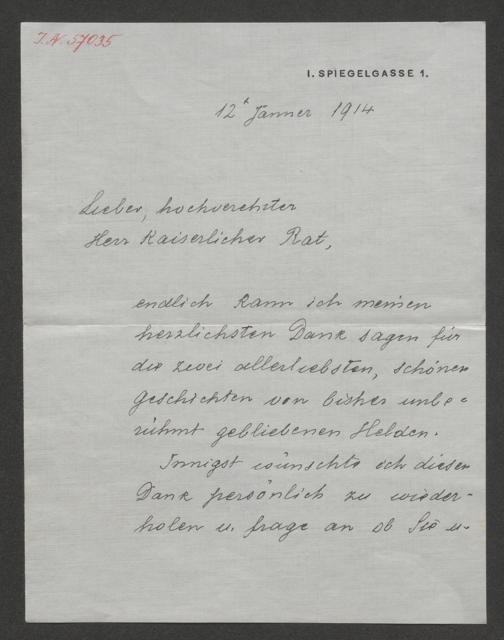 I.N. 57035
I. SPIEGELGASSE 1.
12t Jänner 1914
Lieber, hochverehrter
Herr Kaiserlicher Rat,
endlich kann ich meinen
herzlichsten Dank sagen für
die zwei allerliebsten, schönen
Geschichten von bisher unbe=
rühmt gebliebenen Helden.
Innigst wünschte ich diesen
Dank persönlich zu wieder-
holen u. frage an ob Sie u-